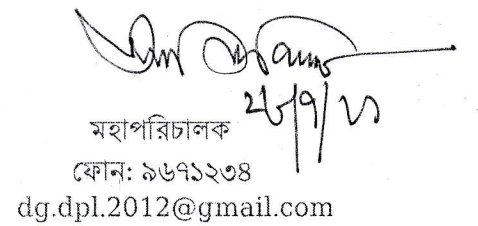 মহাপরিচালক
ফোন: ৯৬৭১২৩৪
dg.dpl.2012@gmail.com